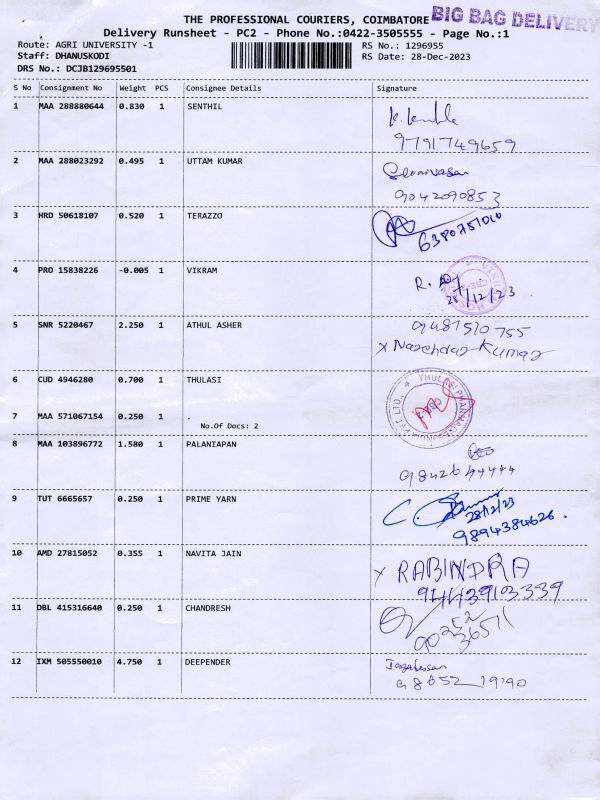 THE PROFESSIONAL COURIERS, COIMBATORE BIG BAG DELIVERY
Delivery Runsheet - PC2 - Phone No.:0422-3505555 - Page No.:1
Route: AGRI UNIVERSITY -1 RS No.: 1296955
Staff: DHANUSKODI RS Date: 28-Dec-2023
DRS No.: DCJB129695501
S No Consignment No Weight PCS Consignee Details Signature
1 MAA 288880644 0.830 1 SENTHIL
9791749659
2 MAA 288023292 0.495 1 UTTAM KUMAR
9042090853
3 HRD 50618107 0.520 1 TERAZZO
6380751010
4 PRO 15838226 -0.005 1 VIKRAM
R.
28/12/23
5 SNR 5220467 2.250 1 ATHUL ASHER
9487510755
x Narendra Kumar
6 CUD 4946280 0.700 1 THULASI
7 MAA 571067154 0.250 1 .
No.Of Docs: 2
8 MAA 103896772 1.580 1 PALANIAPAN
9842644444
9 TUT 6665657 0.250 1 PRIME YARN
C.
28/12/23
9894384626.
10 AMD 27815052 0.355 1 NAVITA JAIN
x RABINDRA
9443913339
11 DBL 415316640 0.250 1 CHANDRESH
12 IXM 505550010 4.750 1 DEEPENDER
98652 19190